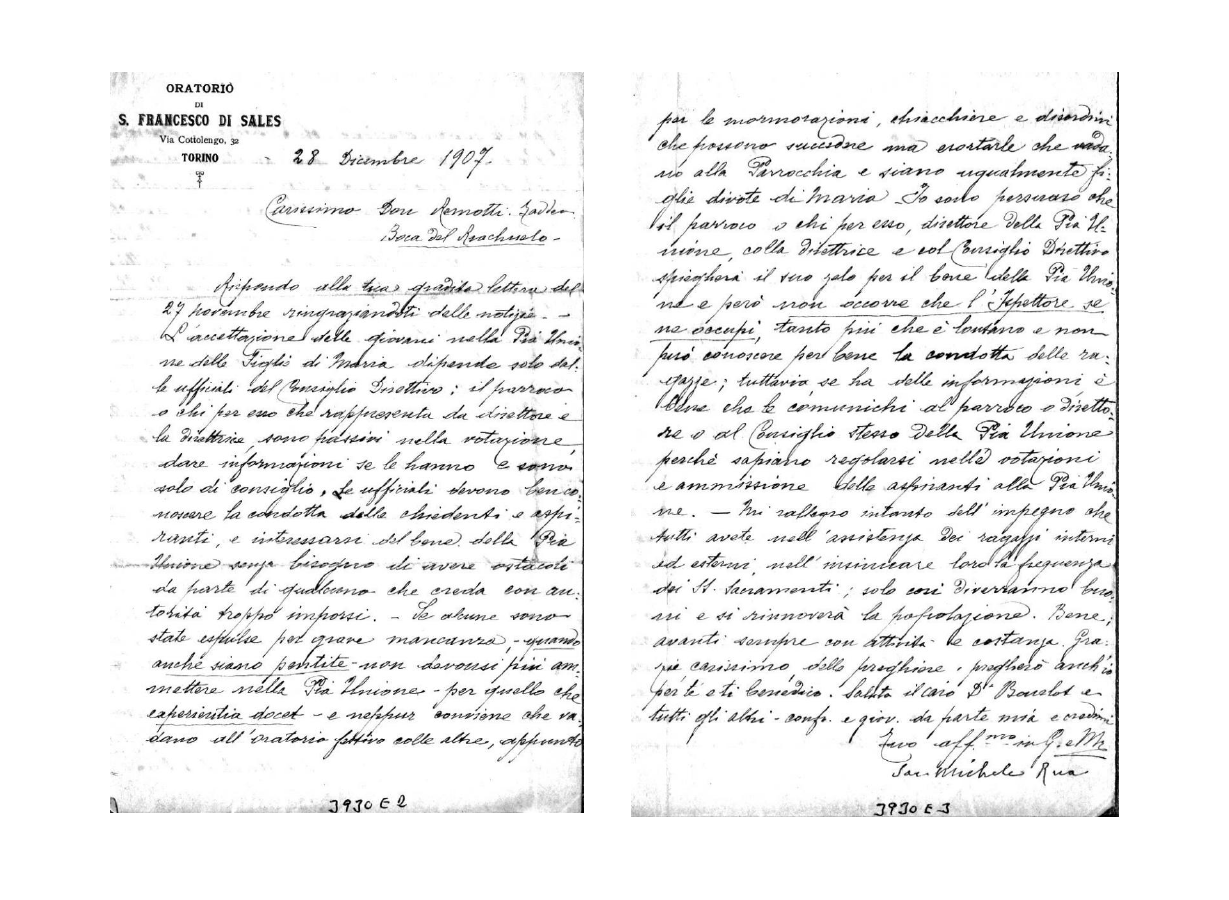 ORATORIO
DI
S. FRANCESCO DI SALES
Via Cottolengo, 32
TORINO
28 Dicembre 1907.
Carissimo Don Remotti Taddeo
Boca del Riachuelo -
Rispondo alla tua gradita lettera del
27 novembre ringraziandoti delle notizie. -
L'accettazione delle giovani nella Pia Unio-
ne delle Figlie di Maria dipende solo dal-
le ufficiali del Consiglio Direttivo: il parroco
o chi per esso che rappresenta da direttore e
la direttrice sono passivi nella votazione
dare informazioni se le hanno e sono
solo di consiglio. Le ufficiali devono ben co-
noscere la condotta delle chiedenti e aspi-
ranti, e interessarsi del bene della Pia
Unione senza bisogno di avere ostacoli
da parte di qualcuno che creda con au-
torità troppo imporsi. - Se alcune sono
state espulse per grave mancanza, - quando
anche siano pentite - non devonsi più am-
mettere nella Pia Unione - per quello che
experientia docet - e neppur conviene che va-
dano all'oratorio festivo colle altre, appunto
3930 E 2
per le mormorazioni, chiacchiere e disordini
che possono succedere ma esortarle che vada-
no alla Parrocchia e siano ugualmente fi-
glie divote di Maria. Io sono persuaso che
il parroco o chi per esso, direttore della Pia U-
nione, colla direttrice e col Consiglio Direttivo
spiegherà il suo zelo per il bene della Pia Unio-
ne e però non occorre che l'Ispettore se
ne occupi, tanto più che è lontano e non
può conoscere per bene la condotta delle ra-
gazze; tuttavia se ha delle informazioni è
bene che le comunichi al parroco o diretto-
re o al Consiglio stesso della Pia Unione
perchè sapiano regolarsi nelle votazioni
e ammissione delle aspiranti alla Pia Unio-
ne. - Mi rallegro intanto dell'impegno che
tutti avete nell'assistenza dei ragazzi interni
ed esterni, nell'insinuare loro la frequenza
dei SS. Sacramenti; solo così diverranno buo-
ni e si rinnoverà la popolazione. Bene,
avanti sempre con attività e costanza. Gra-
zie carissimo delle preghiere. pregherò anch'io
per te e ti benedico. Saluta il caro D. e
tutti gli altri - confr. e giov. da parte mia e credimi
Tuo aff.mo in G. e M.
Sac. Michele Rua
3930 E 3